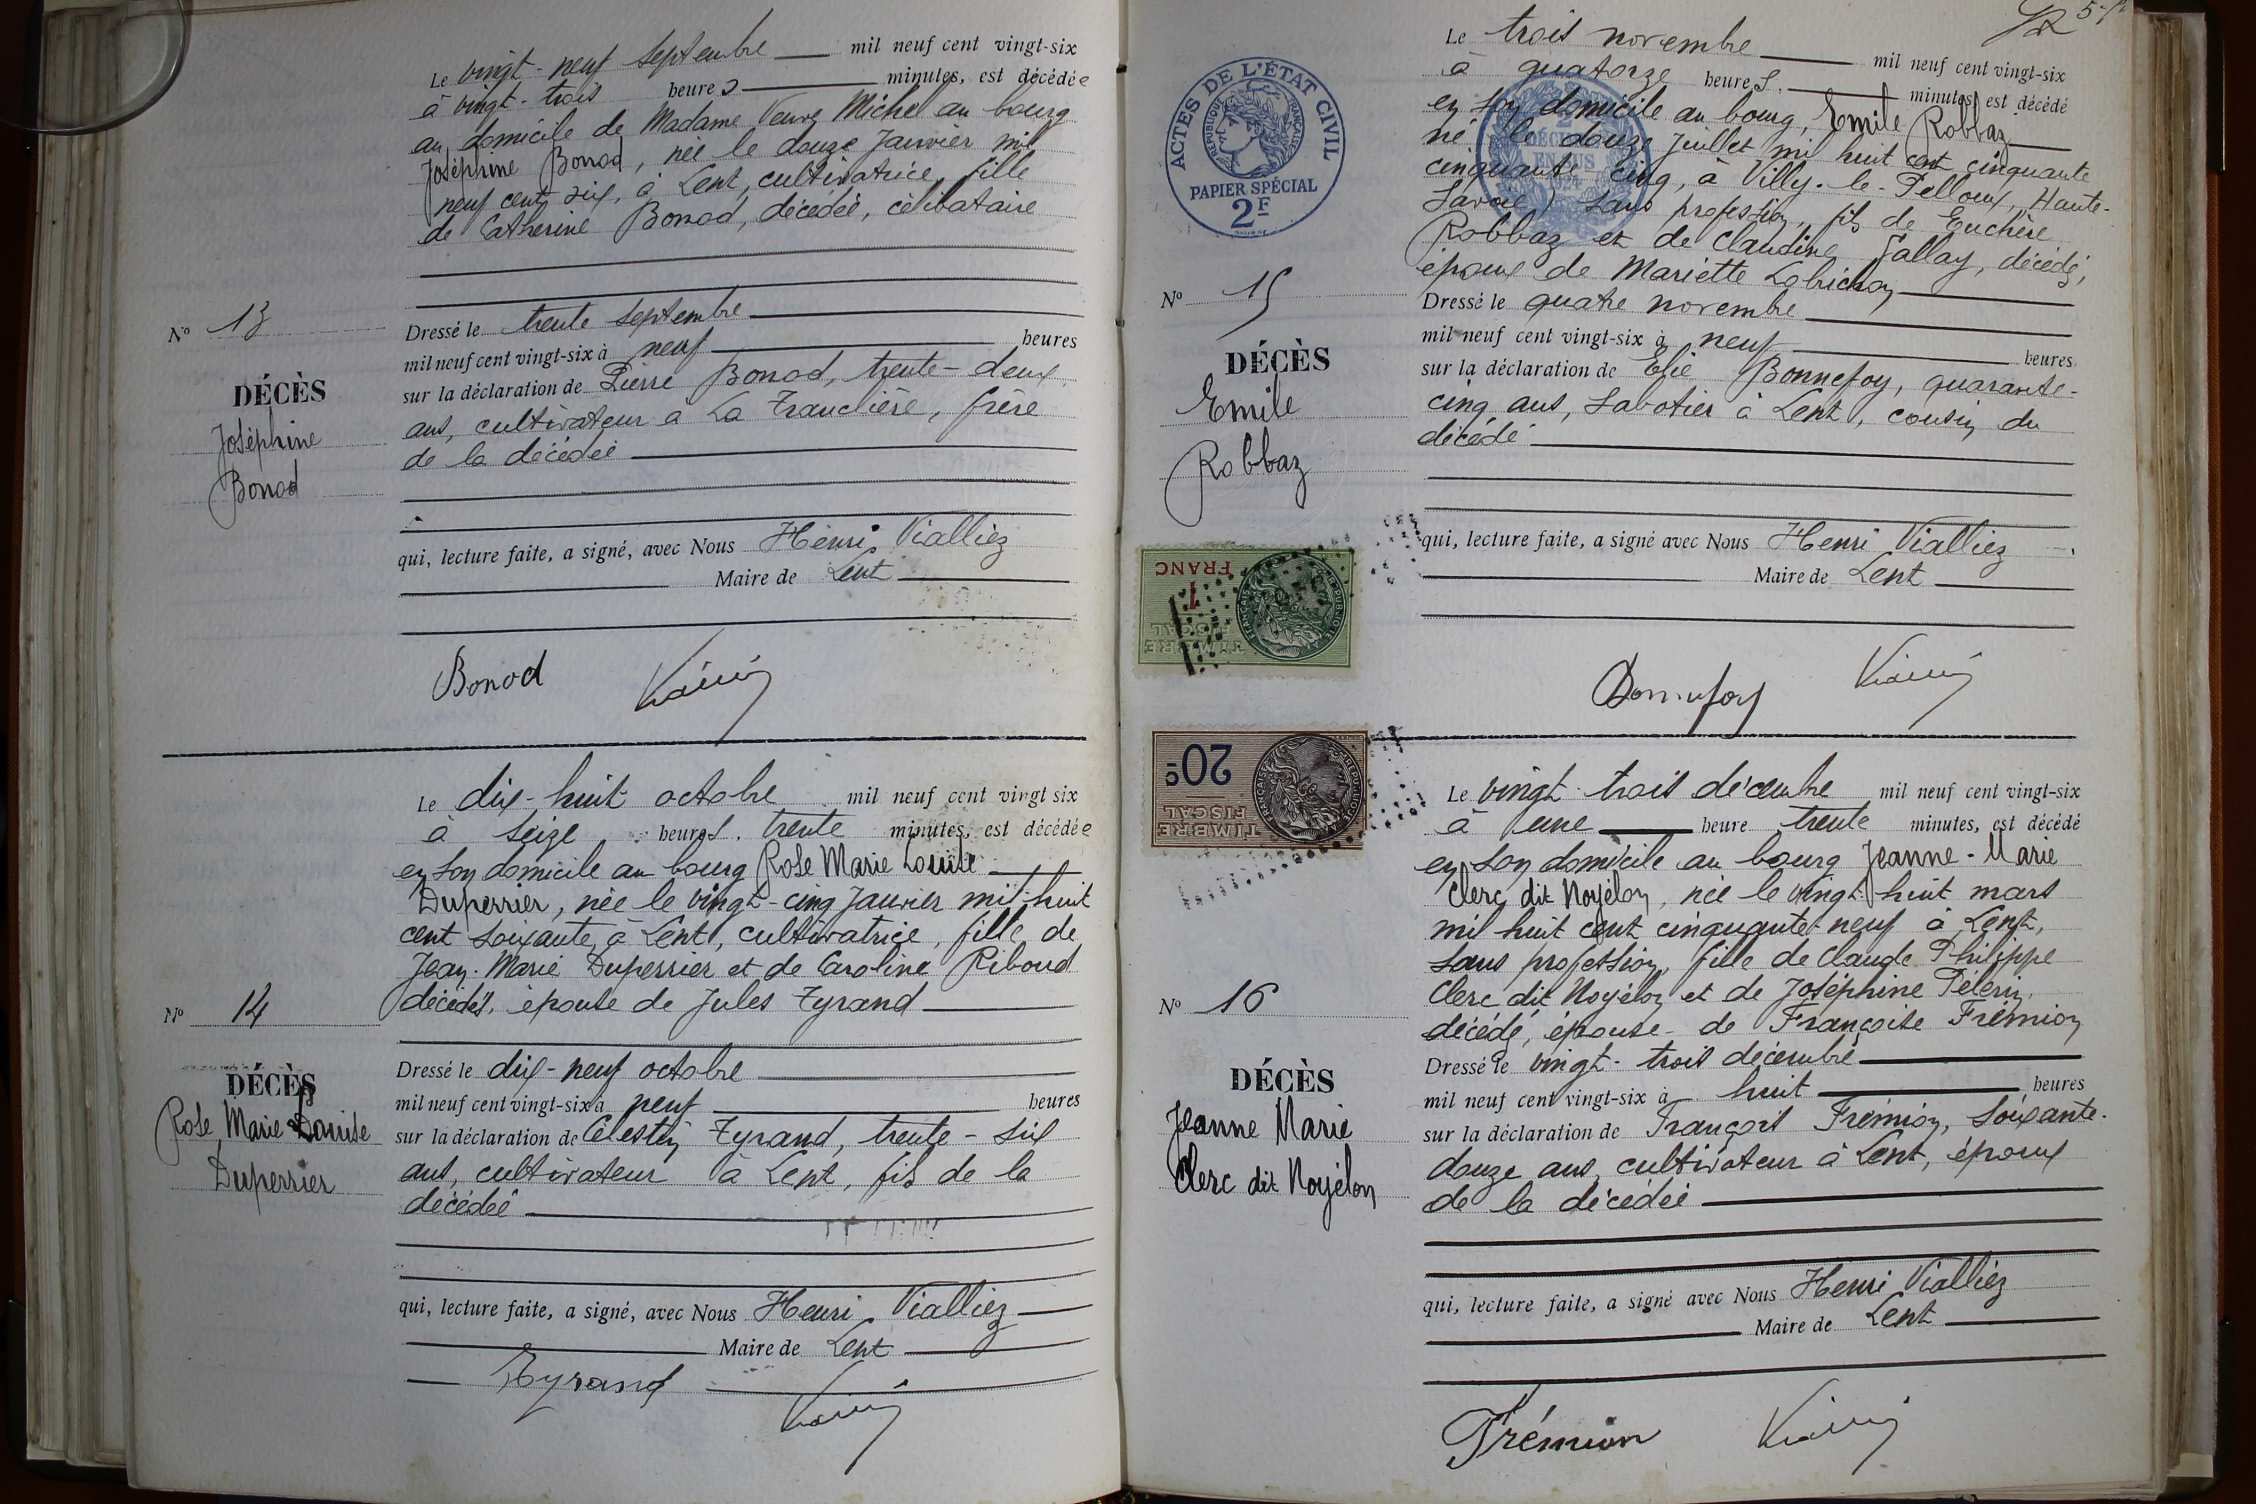 Le vingt-neuf septembre mil neuf cent vingt-six
à vingt-trois heures minutes, est décédée
au domicile de Madame Veuve Michel au bourg
Joséphine Bonod, née le douze Janvier mil
neuf cent six, à Lent, cultivatrice, fille
de Catherine Bonod, décédée, célibataire
No 13
DÉCÈS
Joséphine
Bonod
Dressé le trente septembre
mil neuf cent vingt-six à neuf heures
sur la déclaration de Pierre Bonod, trente-deux
ans, cultivateur à La Tranclière, frère
de la décédée
qui, lecture faite, a signé, avec Nous Henri Vialliez
Maire de Lent
Bonod
Le dix-huit octobre mil neuf cent vingt six
à seize heures. trente minutes, est décédée
en son domicile au bourg Rose Marie Louise
Duperrier, née le vingt-cinq Janvier mil huit
cent soixante, à Lent, cultivatrice, fille de
Jean-Marie Duperrier et de Caroline Riboud
décédés, épouse de Jules Tyrand
No 14
DÉCÈS
Rose Marie Louise
Duperrier
Dressé le dix-neuf octobre
mil neuf cent vingt-six à neuf heures
sur la déclaration de Célestin Tyrand, trente-six
ans, cultivateur à Lent, fils de la
décédée
qui, lecture faite, a signé, avec Nous Henri Vialliez
Maire de Lent
Tyrand
ACTES DE L'ÉTAT CIVIL
RÉPUBLIQUE FRANÇAISE
PAPIER SPÉCIAL
2F
Le trois novembre mil neuf cent vingt-six
à quatorze heures. minutes, est décédé
en son domicile au bourg, Emile Robbaz
né le douze Juillet mil huit cent cinquante
cinquante cinq, à Villy-le-Pelloux, Haute-
Savoie) sans profession, fils de Euchère
Robbaz et de Claudine Fallay, décédés,
époux de Mariette Lobrichon
No 15
DÉCÈS
Emile
Robbaz
Dressé le quatre novembre
mil neuf cent vingt-six à neuf heures
sur la déclaration de Elie Bonnefoy, quarante-
cinq ans, Sabotier à Lent, cousin du
décédé
qui, lecture faite, a signé avec Nous Henri Vialliez
Maire de Lent
Bonnefoy
1 FRANC
TIMBRE FISCAL
20c
TIMBRE FISCAL
Le vingt-trois décembre mil neuf cent vingt-six
à une heure trente minutes, est décédé
en son domicile au bourg Jeanne-Marie
Clerc dit Noyélon, née le vingt-huit mars
mil huit cent cinquante-neuf à Lent,
sans profession, fille de Claude Philippe
Clerc dit Noyélon et de Joséphine Pélerin,
décédé, épouse de Françoise Frémion
No 16
DÉCÈS
Jeanne Marie
Clerc dit Noyélon
Dressé le vingt-trois décembre
mil neuf cent vingt-six à huit heures
sur la déclaration de François Frémion, soixante-
douze ans, cultivateur à Lent, époux
de la décédée
qui, lecture faite, a signé avec Nous Henri Vialliez
Maire de Lent
Frémion